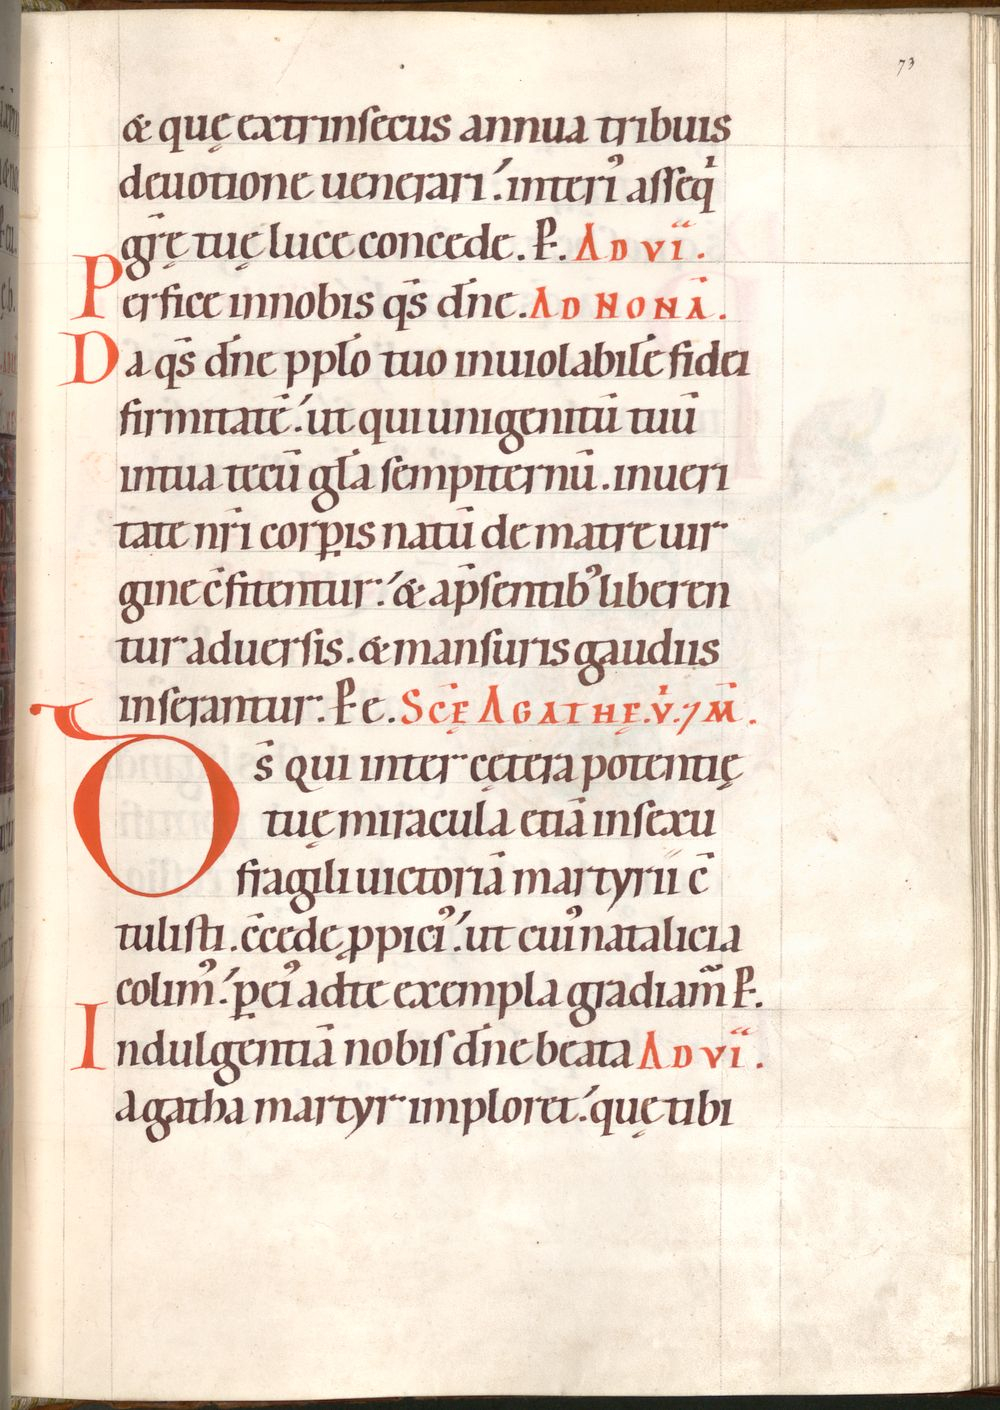 73
& quę extrinsecus annua tribuis
deuotione uenerari .́ interi᾽ asseq̇
gr̄ę tuę luce concede. P̄. AD VI̋.
Perfice in nobis q̄s dn̄e. AD NONĀ.
Da q̄s dn̄e pplo̅ tuo inuiolabile̅ fidei
firmitate̅ .́ ut qui unigenitū tuū
in tua tecū gl̄a sempiternū. in ueri
tate nr̄i corꝑis natū de matre uir
gine c̄fitentur .́ & a p̄sentib᾽ liberen
tur aduersis. & mansuris gaudiis
inserantur. P̄ e. SC̄Ę AGATHĘ. V̇. ⁊ M̄.
Ds̄ qui inter cętera potentię
tuę miracula etiā in sexu
fragili uictoriā martyrii c̄
tulisti. c̄cede ꝓpici᾽ .́ ut cui᾽ natalicia
colim᾽ .́ ꝑ ei᾽ ad te exempla gradiam᷑ P̄.
Indulgentiā nobis dn̄e beata AD VI̋.
agatha martyr imploret .́ quę tibi